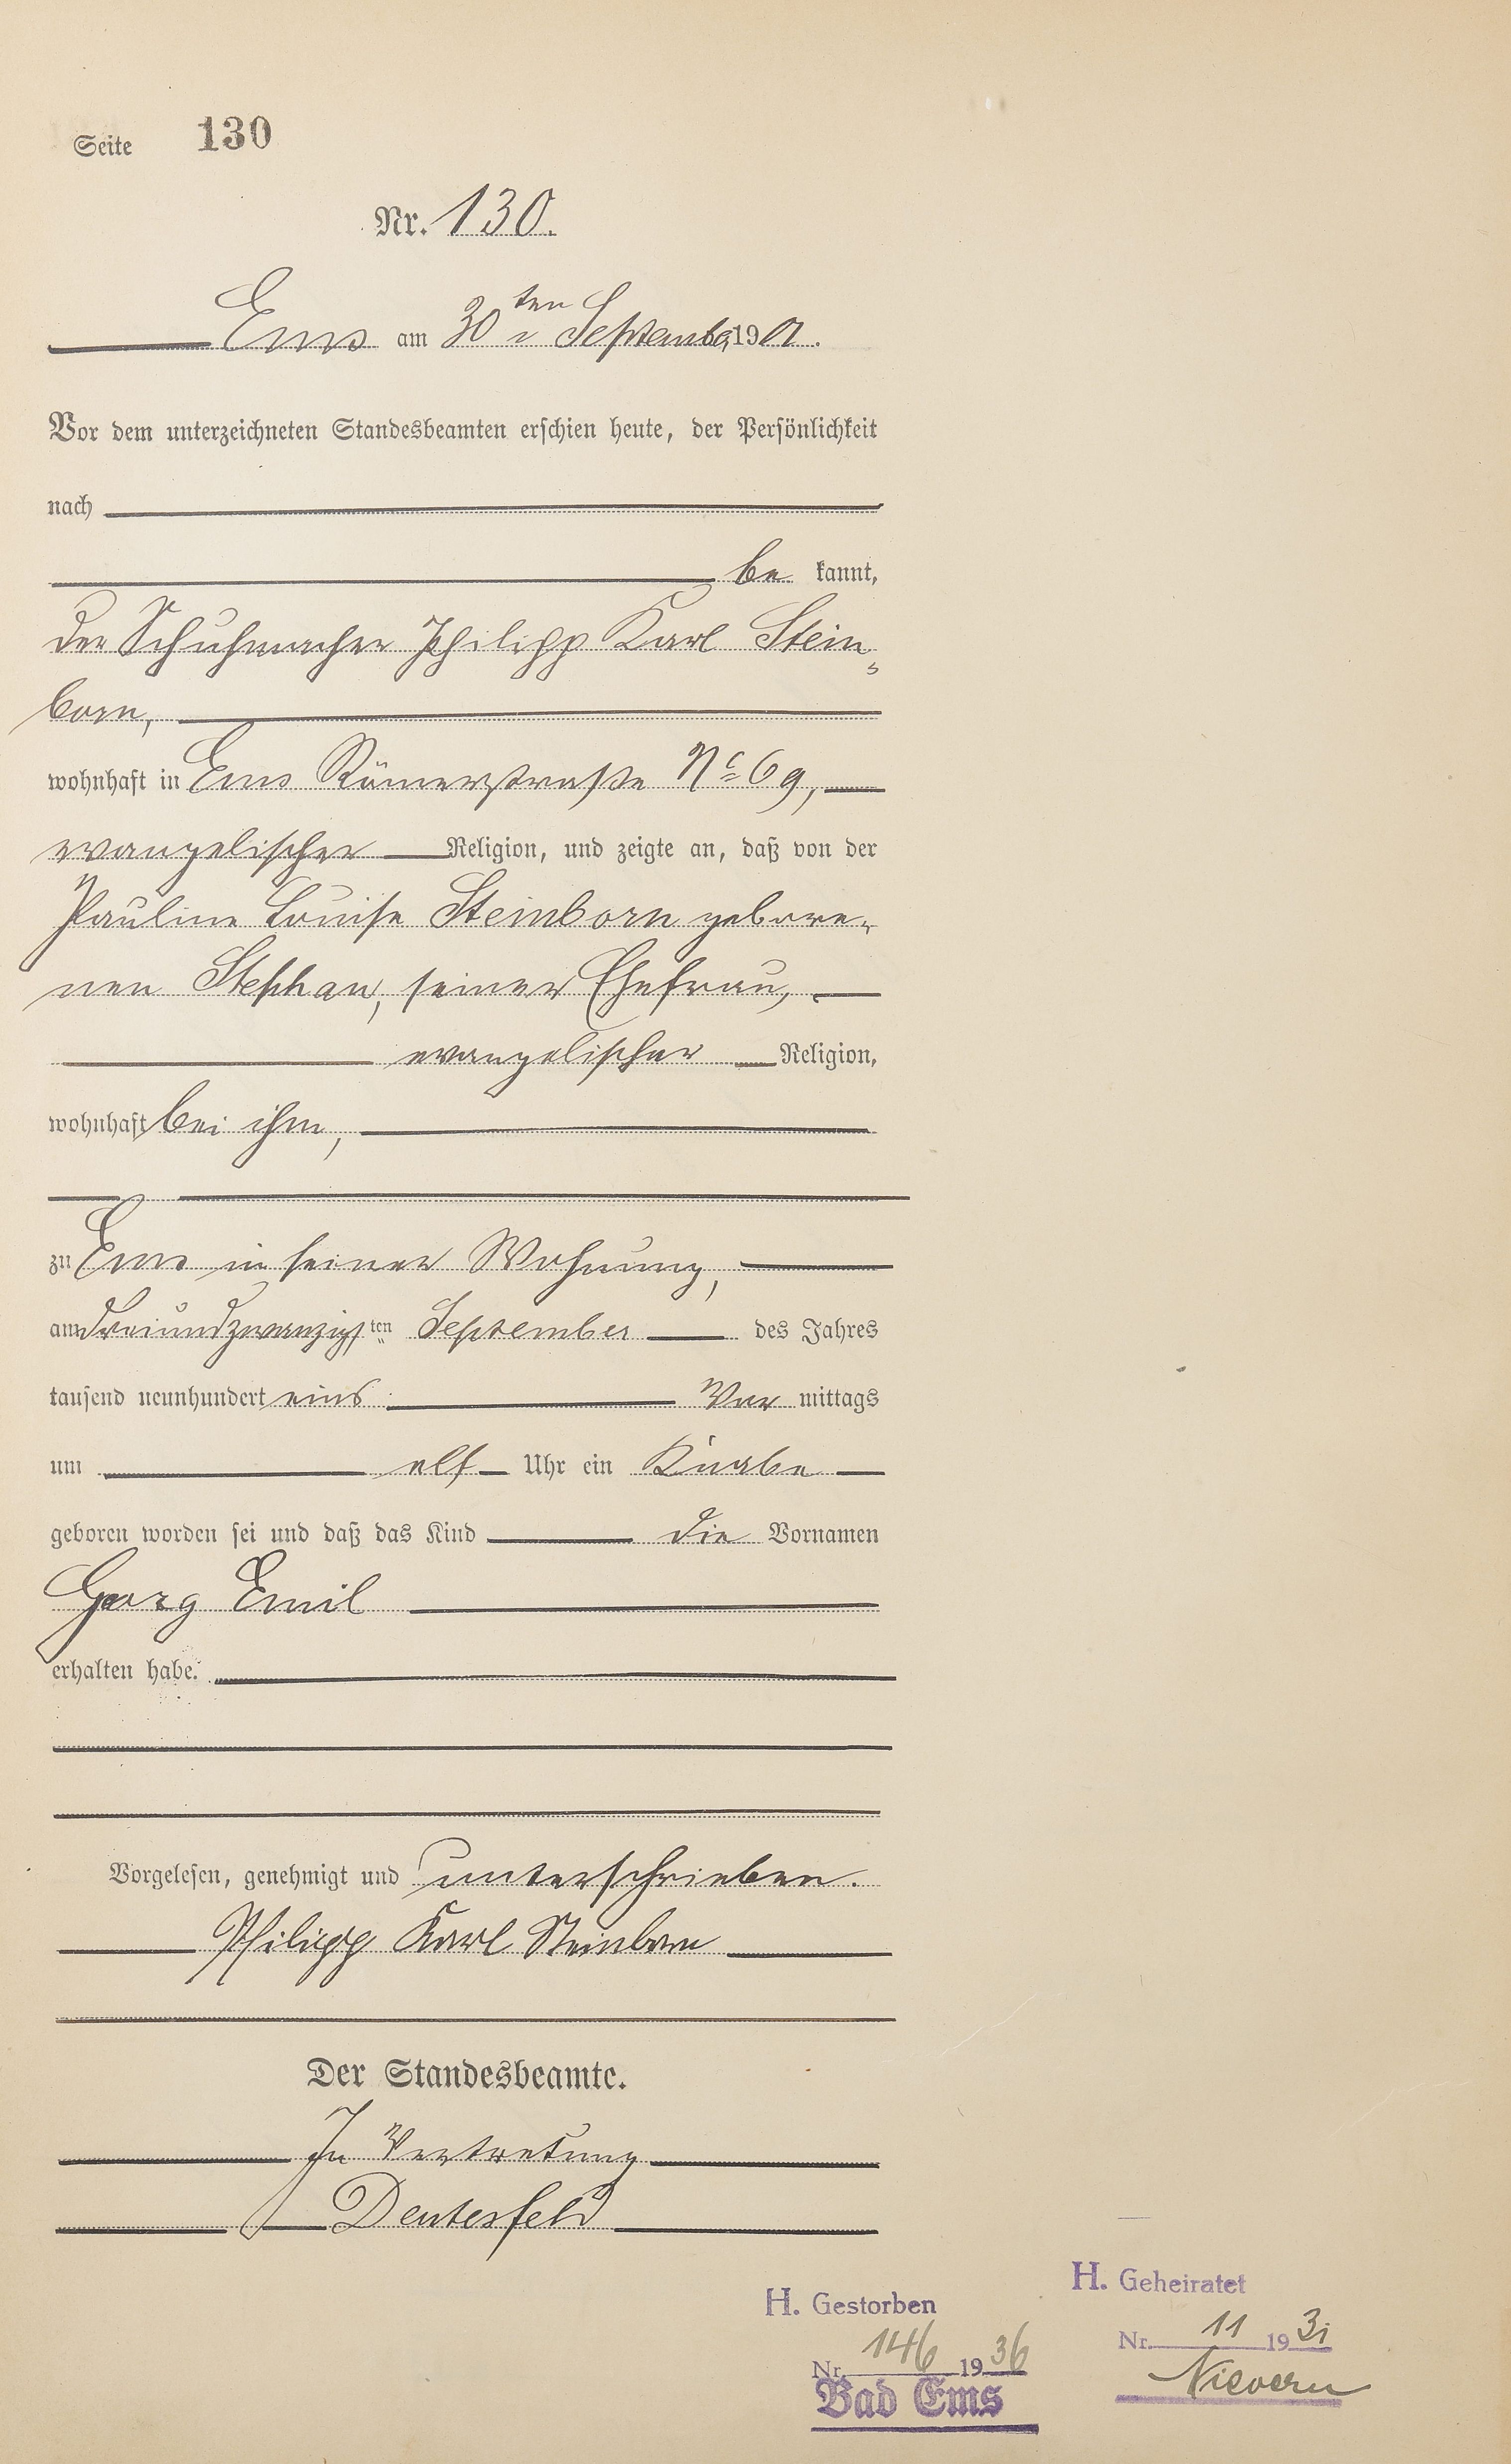 Seite 130
Nr. 130.
Ems am 30ten September 1901.
Vor dem unterzeichneten Standesbeamten erschien heute, der Persönlichkeit
nach
be kannt,
der Schuhmacher Philipp Karl Stein-
born,
wohnhaft in Ems Römerstraße No 69,
evangelischer Religion, und zeigte an, daß von der
Pauline Louise Steinborn gebore-
nen Stephan, seiner Ehefrau,
evangelischer Religion,
wohnhaft bei ihm,
zu Ems in seiner Wohnung,
am dreiundzwanzigsten September des Jahres
tausend neunhundert eins Vor mittags
um elf Uhr ein Knabe
geboren worden sei und daß das Kind die Vornamen
Georg Emil
erhalten habe.
Vorgelesen, genehmigt und unterschrieben.
Philipp Karl Steinborn
Der Standesbeamte.
In Vertretung
Deutesfeld
H. Geheiratet
Nr. 11 1931
Nievern
H. Gestorben
Nr. 146 1936
Bad Ems